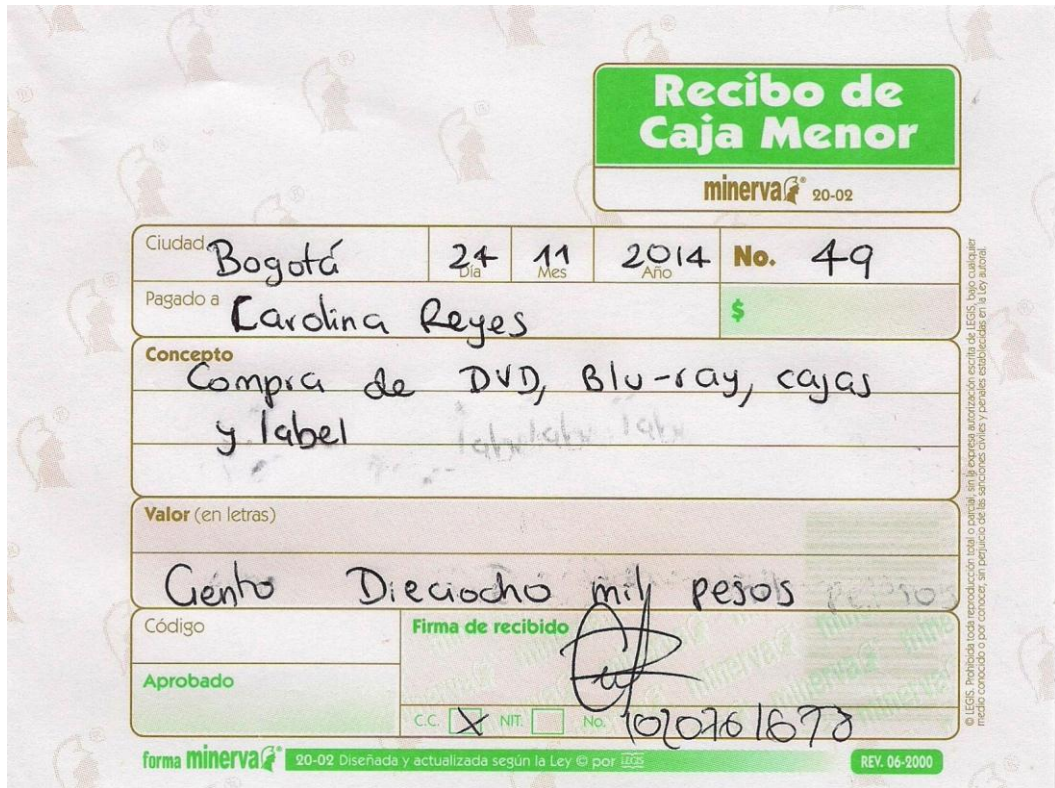 Recibo de
Caja Menor
minerva® 20-02
Ciudad Bogotá 24 Día 11 Mes 2014 Año No. 49
Pagado a Carolina Reyes $
Concepto
Compra de DVD, Blu-ray, cajas
y label
Valor (en letras)
Ciento Dieciocho mil pesos
Código
Firma de recibido
Aprobado
C.C. X NIT. No.
forma minerva® 20-02 Diseñada y actualizada según la Ley © por LEGIS
REV. 06-2000
© LEGIS. Prohibida toda reproducción total o parcial, sin la expresa autorización escrita de LEGIS, bajo cualquier
medio conocido o por conocer, sin perjuicio de las sanciones civiles y penales establecidas en la Ley autoral.